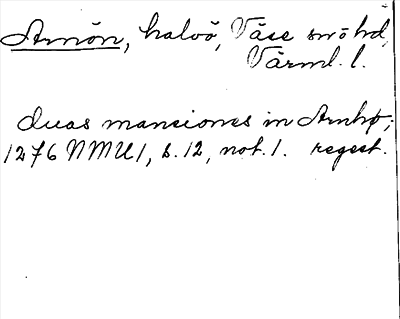 Arnön, halvö, Väse sn o hd,
Värml. l.
duas mansiones in Arnhø;
1276 NMU 1, s. 12, not. 1. regest.